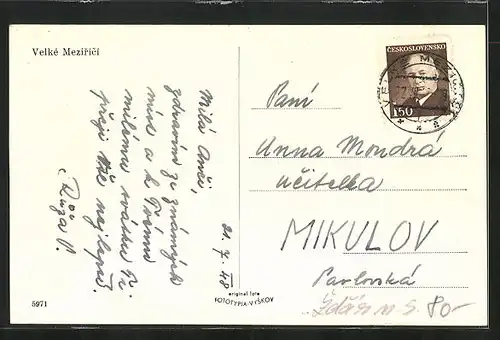 Velké Meziříčí
Milá Anči,
zdravím ze známých
míst a k Tvému
milému svátku Ti
přeji vše nejlepší.
Růža V.
21. 7. 48
5971
original foto
FOTOTYPIA-VYŠKOV
ČESKOSLOVENSKO
1.50
Paní
Anna Mondrá
učitelka
MIKULOV
Pavlovská
Žďár n. S. 80-